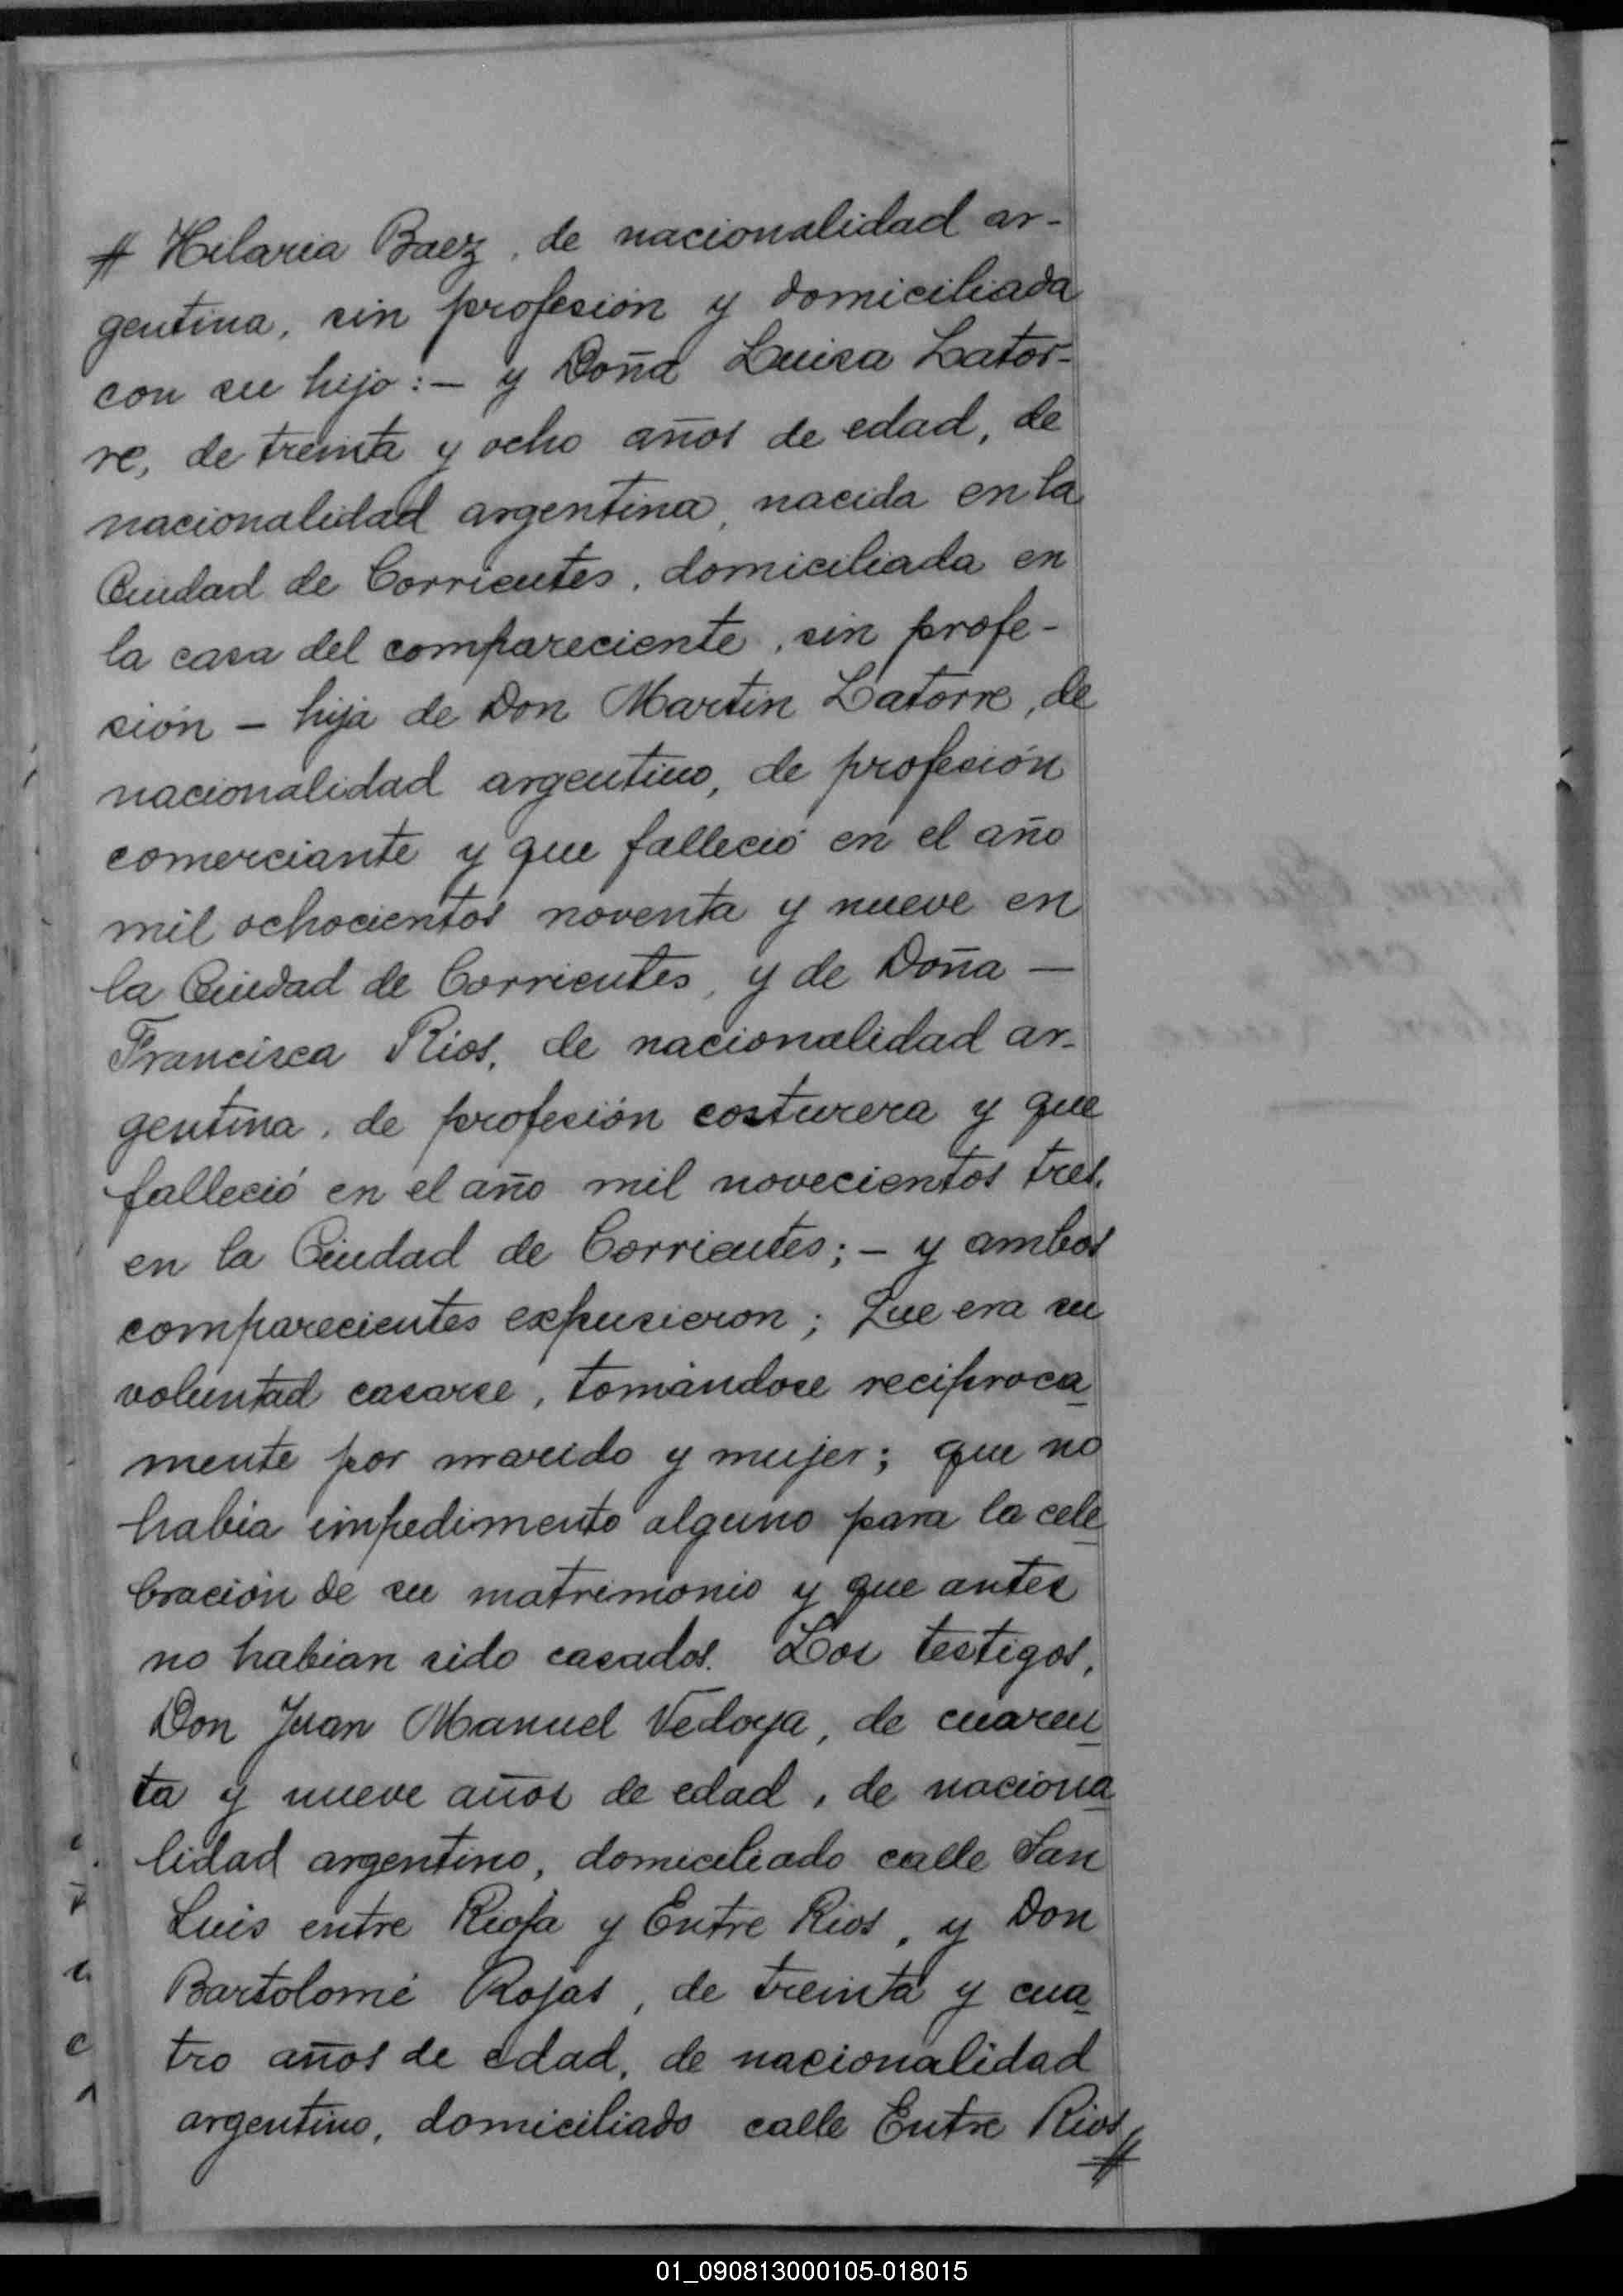 # Hilaria Baez, de nacionalidad ar-
gentina, sin profesión y domiciliada
con su hijo:- y Doña Luisa Lator-
re, de treinta y ocho años de edad, de
nacionalidad argentina, nacida en la
Ciudad de Corrientes, domiciliada en
la casa del compareciente, sin profe-
sión - hija de Don Martin Latorre, de
nacionalidad argentino, de profesión
comerciante y que falleció en el año
mil ochocientos noventa y nueve en
la Ciudad de Corrientes, y de Doña —
Francisca Rios, de nacionalidad ar-
gentina, de profesión costurera y que
falleció en el año mil novecientos tres,
en la Ciudad de Corrientes; - y ambos
comparecientes expusieron; Que era su
voluntad casarse, tomándose recíproca
mente por marido y mujer; que no
habia impedimento alguno para la cele
bración de su matrimonio y que antes
no habian sido casados. Los testigos,
Don Juan Manuel Vedoya, de cuaren
ta y nueve años de edad, de naciona
lidad argentino, domiciliado calle San
Luis entre Rioja y Entre Rios, y Don
Bartolomé Rojas, de treinta y cua
tro años de edad, de nacionalidad
argentino, domiciliado calle Entre Rios
#
01_090813000105-018015